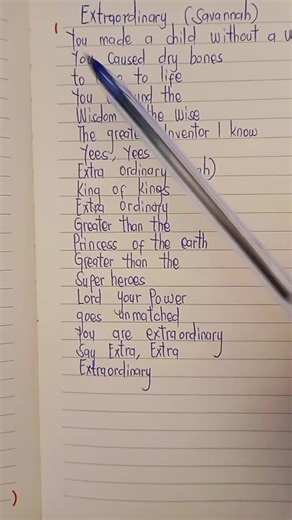 Extraordinary (Savannah)
You made a child without a
You caused dry bones
to to life
You the
Wisdom the wise
The greatest inventor I know
Yees, Yees
Extra ordinary
King of kings
Extra Ordinary
Greater than the
Princess of the earth
Greater than the
Super heroes
Lord your Power
goes unmatched
You are extraordinary
Say Extra, Extra
Extraordinary